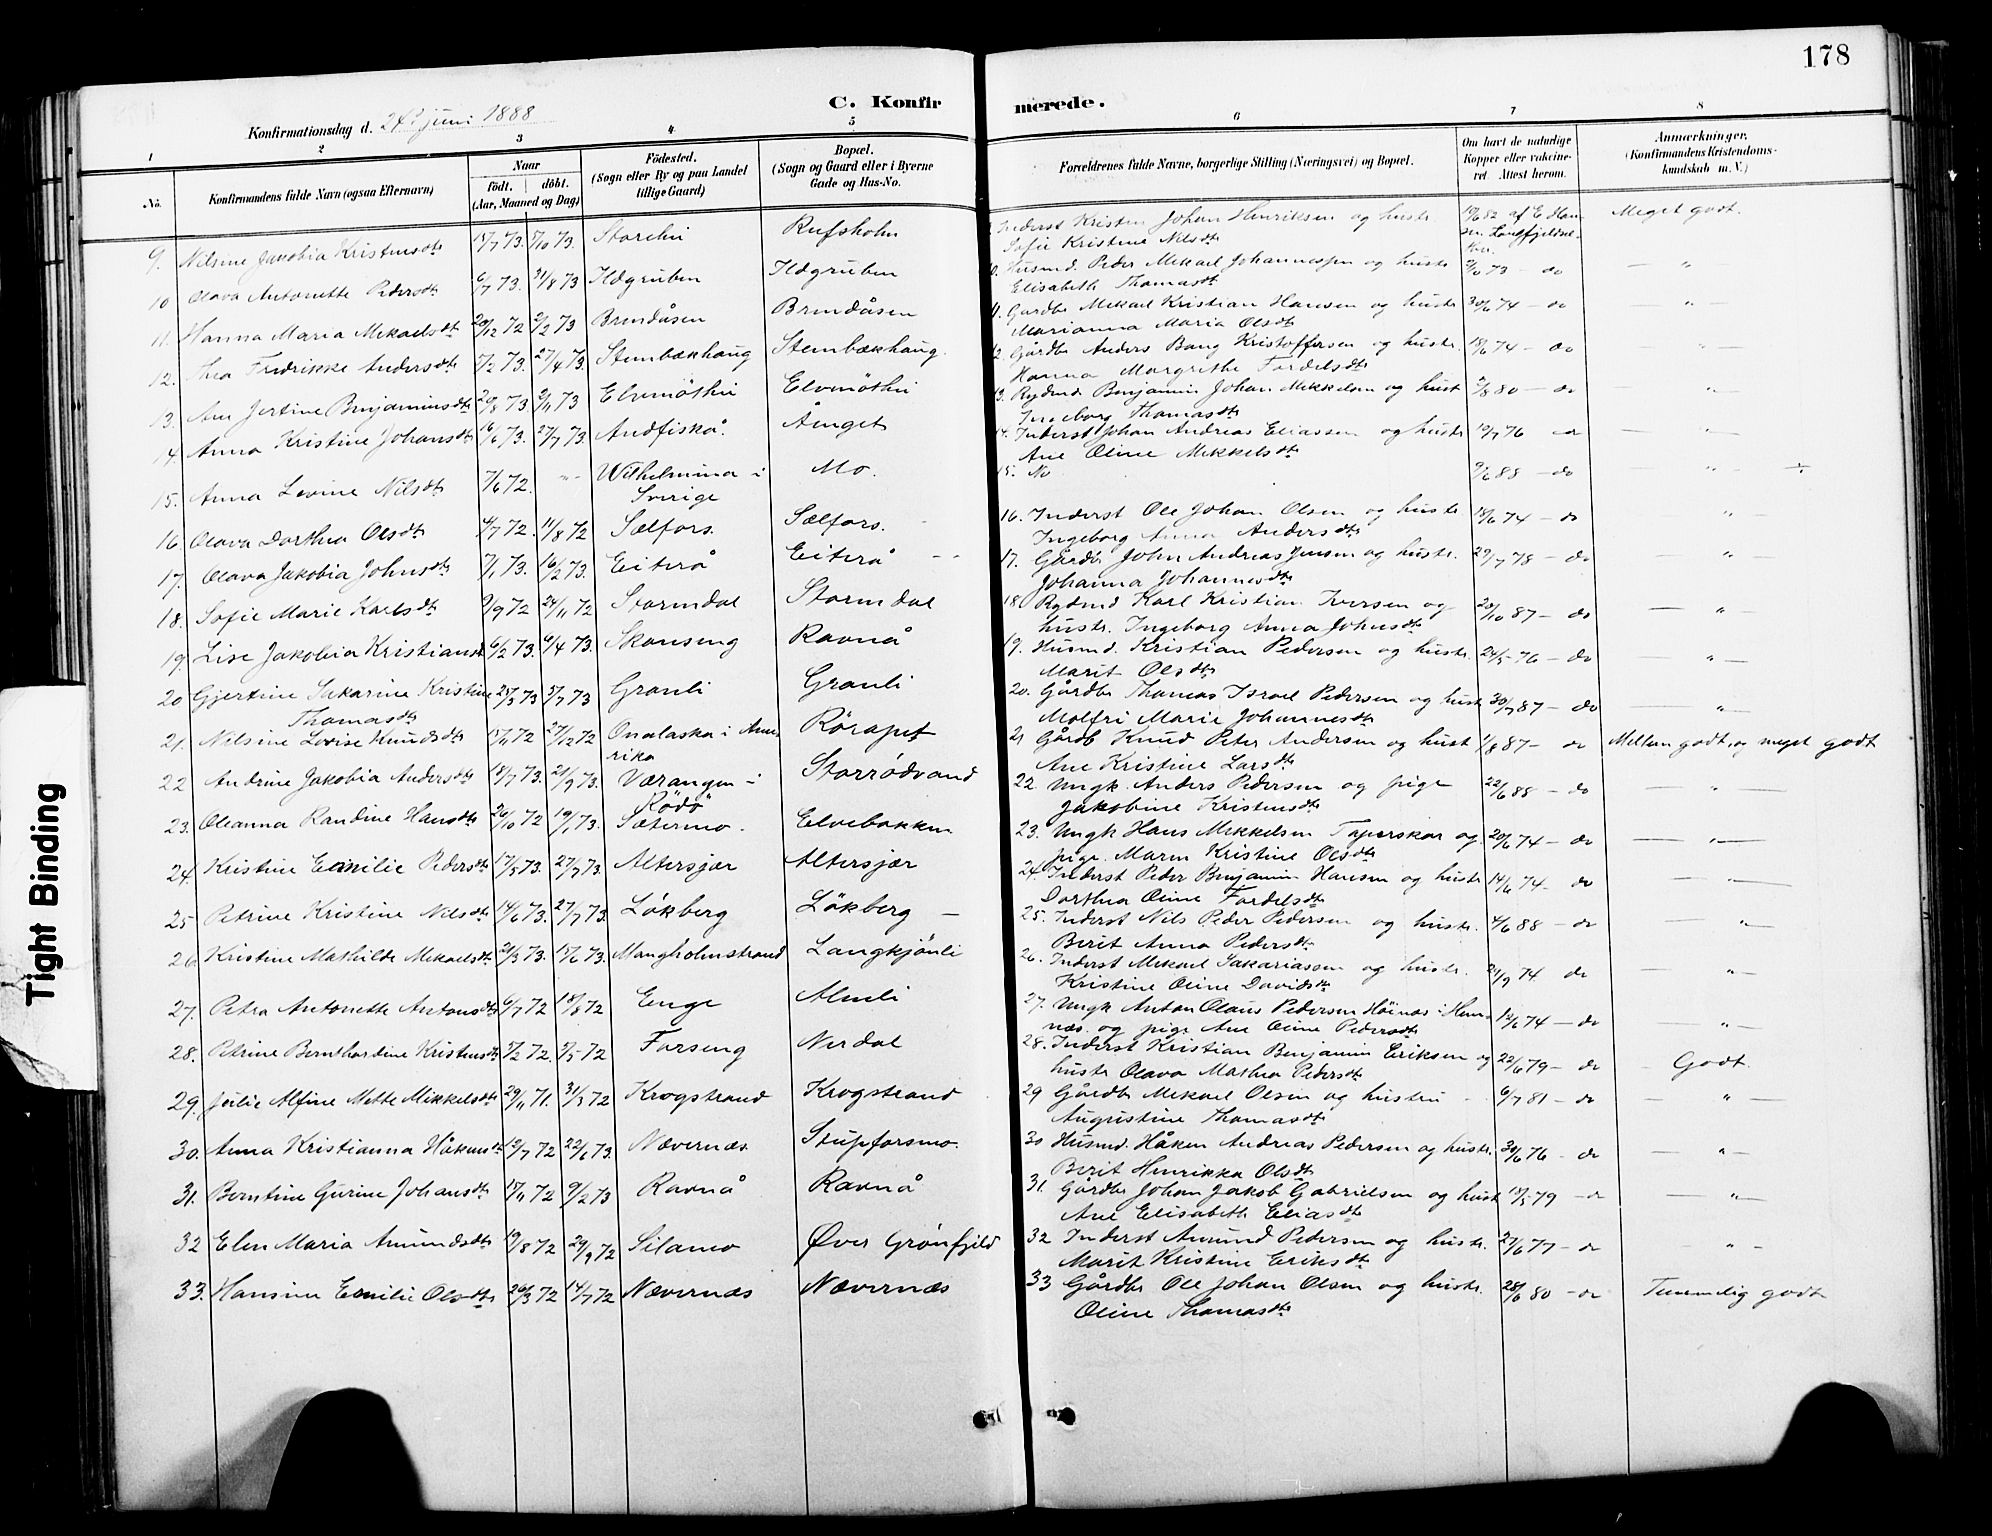 178
C. Konfirmerede.
Konfirmationsdag d. 24de juni 1888
1 2 3 4 5 6 7 8
No.
Konfirmandens fulde Navn (ogsaa Efternavn)
Naar födt. döbt. (Aar, Maaned og Dag)
Födested. (Sogn eller By og paa Landet tillige Gaard)
Bopæl. (Sogn og Gaard eller i Byerne Gade og Hus-No.
Forældrenes fulde Navne, borgerlige Stilling (Næringsvei) og Bopæl.
Om havt de naturlige Kopper eller vakcineret. Attest herom.
Anmærkninger. (Konfirmandens Kristendomskundskab m. V.)
9. Nilsine Jakobia Kristensdtr 15/7 73. 5/10 73. Storehei Rufsholm Inderst Kristen Johan Henriksen og hustr. Sofie Kristine Nilsdtr 19/6 82 af E Hansen. Meget godt.
10 Olava Antonette Pedersdtr 6/7 73. 31/8 73 Ildgruben Ildgruben 10. Husmd. Peder Mikael Johannessen og hustr Elisabeth Thomasdtr 2/10 73 - do — " —
11. Hanna Maria Mikaelsdtr 20/12 72 2/2 73 Brendåsen Brendåsen 11. Gårdbr Mikael Kristian Hansen og hustr Marianna Maria Olsdtr 30/6 74 - do — " —
12. Thea Fredrikke Andersdtr 5/2 73. 27/4 73. Stenbækhaug Stenbækhaug. 12. Gårdbr Anders Bang Kristoffersen og hustr. Hanna Margrethe Fordelsdtr 18/6 74 - do
13. Ane Jertine Benjaminsdtr 20/8 73. 2/11 73 Elvemöthei Elvemöthei 13. Rydmd Benjamin Johan Mikkelsen og hust Ingeborg Thomasdtr 5/8 80 - do "
14. Anna Kristine Johansdtr 16/6 73. 27/7 73. Andfiskå. Ånget 14. Inderst Johan Andreas Eliassen og hustr Ane Oline Mikkelsdtr 19/7 76 do — " —
15. Anna Lovine Nilsdtr 7/6 72. " Wilhelmina i Sverige Mo. 15. No 9/6 88 - do — " ÷
16. Olava Dorthea Olsdtr 4/7 72. 11/8 72 Selfors. Selfors. 16. Inderst Ole Johan Olsen og hustr Ingeborg Anna Andersdtr 18/6 74 - do — " —
17. Olava Jakobia Johnsdtr 7/1 73. 16/2 73. Eiterå Eiterå 17. Gårdbr John Andreas Jensen og hustr. Johanna Johannesdtr 29/7 78 - do — " —
18. Sofie Marie Karlsdtr 9/9 72 24/11 72 Stormdal Stormdal 18. Rydmd Karl Kristian Iversen og hustr. Ingeborg Anna Johnsdtr 20/10 87 - do — " —
19. Lise Jakobia Kristiansdtr 6/2 73. 6/4 73. Skonseng Ravnå 19. Husmd. Kristian Pedersen og hustr. Marit Olsdtr 24/5 76 - do " —
20 Gjertine Sakarine Kristine Thomasdtr 25/3 73 5/7 73 Granli Granli 20. Gårdbr Thomas Israel Pedersen og hust Molfri Marie Johannesdtr 30/7 87 - do "
21. Nilsine Lovise Knudsdtr 15/11 72 27/12 72 Onalaska i Amerika Röraget 21 Gårdb Knud Peter Andersen og hust Ane Kristine Larsdtr 1/8 87 - do Mellem godt og meget godt
22 Andrine Jakobia Andersdtr 18/7 73. 21/9 73. Værangen i Rödö Storrödvand 22. Ungk. Anders Pedersen og pige Jakobine Kristensdtr 22/6 88 - do — " —
23. Oleanna Randine Hansdtr 26/10 72 19/1 73. Sætermo. Elvebakken 23. Ungk Hans Mikkelsen Taperskar og pige. Maren Kristine Olsdtr 20/6 74 - do — " —
24. Kristine Emilie Pedersdtr 17/5 73. 27/7 73. Altersjær Altersjær 24. Inderst Peder Benjamin Hansen og hustr Dorthea Oline Fordelsdtr 14/6 74 - do — " —
25 Petrine Kristine Nilsdtr 14/6 73. 27/7 73. Lökberg Lökberg — 25. Inderst Nils Peder Pedersen og hustr. Berit Anna Pedersdtr 4/6 88 - do "
26. Kristine Mathilde Mikaelsdtr 21/3 73. 15/6 73. Mangholmstrand Langkjönli 26. Inderst Mikael Sakariassen og hustr. Kristine Oline Davidsdtr 21/9 74 do — " —
27. Petra Antonette Antonsdtr 6/7 72 18/8 72 Enge Almli 27. Ungk Anton Olaus Pedersen Höinæs i Hemnæs. og pige Ane Oline Pedersdtr 12/6 74 - do — " —
28. Petrine Bernthardine Kristensdtr 5/2 72. 5/5 72 Forseng Nerdal 28. Inderst Kristian Benjamin Eriksen og hustr Olava Mathea Pedersdtr 22/6 79 - do Godt.
29. Julie Alfine Mette Mikkelsdtr 29/11 71. 31/3 72 Krogstrand Krogstrand 29 Gårdbr Mikael Olsen og hustru Augustine Thomasdtr 6/7 81 - do — " —
30. Anna Kristianna Håkensdtr 12/7 72 22/6 73. Nævernæs Stupforsmo. 30 Husmd. Håken Andreas Pedersen og hustr. Berit Henrikka Olsdtr 30/6 76 - do — " —
31. Berntine Gurine Johansdtr 15/11 72 9/2 73 Ravnå Ravnå 31. Gårdbr Johan Jakob Gabrielsen og hust Ane Elisabeth Eliasdtr 13/5 79 - do — " —
32 Elen Maria Amundsdtr 19/8 72 29/9 72 Silamo Øver Grönfjeld 32 Inderst Amund Pedersen og hustr. Marit Kristine Eriksdtr 27/6 77 - do — " —
33. Hansine Emilie Olsdtr 26/3 72 14/7 72 Nævernæs Nævernæs 33 Gårdbr Ole Johan Olsen og hustr. Oline Thomasdtr 28/6 80 - do Temmelig godt
Tight Binding